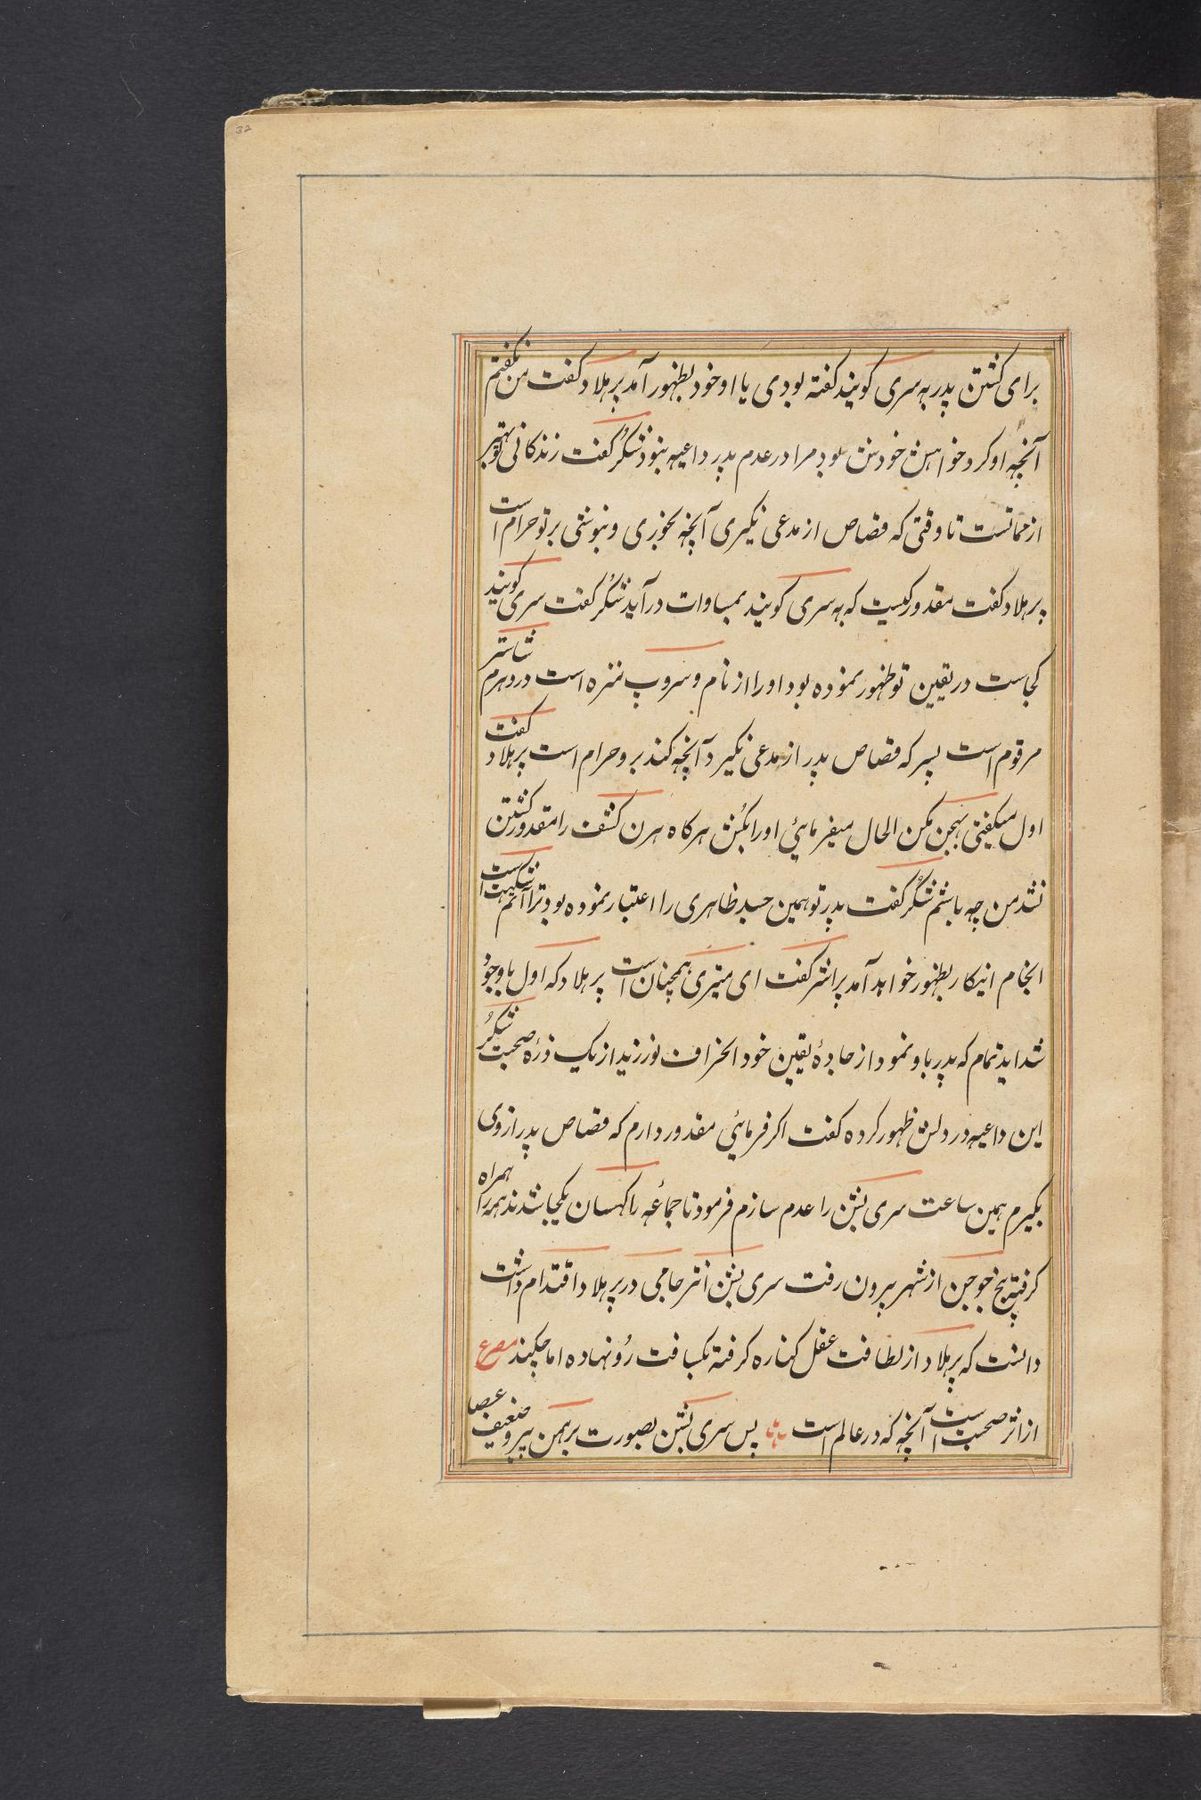 32
برای کشتن پدر به سری گویند گفته بودی یا او خود بظهور آمد پرهلاد گفت من نگفتم
آنچه او کرد خواهش خودش بود مرا در عدم پدر داعیه نبود شکر گفت زندگانی تو بهتر
از مماتست تا وقتی که قصاص از مدعی نگیری آنچه بخوری و بنوشی بر تو حرام است
پرهلاد گفت مقدور کیست که به سری گویند بمساوات درآید شکر گفت سری گویند
کجاست در یقین تو ظهور نموده بود او را از نام و سروپ منزه است در دهرم شاستر
مرقوم است پسر که قصاص پدر از مدعی نگیرد آنچه کند برو حرام است پرهلاد گفت
اول میگفتی بهجن مکن الحال میفرمائی او را بکش هرگاه هرن کشف را مقدور کشتن
نشد من چه باشم شکر گفت پدر تو همین جسد ظاهری را اعتبار نموده بود ترا آتم است
انجام اینکار بظهور خواهد آمد پراشر گفت ای میتری همچنان است پرهلاد که اول باوجود
شداید تمام که پدر باو نمود از جادهٔ یقین خود انحراف نورزید از یک ذره صحبت شکر
این داعیه در دلش ظهور کرده گفت اگر فرمائی مقدور دارم که قصاص پدر از وی
بگیرم همین ساعت سری بشن را عدم سازم فرمود تا جماعه راکهسان یکجا شدند همه را همراه
گرفته پنج جوجن از شهر بیرون رفت سری بشن انترجامی در پرهلاد اقتدام داشت
دانست که پرهلاد از لطافت عقل کناره گرفته بکسافت رُو نهاده اما چکند مصرع
از اثر صحبت است آنچه که در عالم است پس سری بشن بصورت برهمن پیر و ضعیف عصا